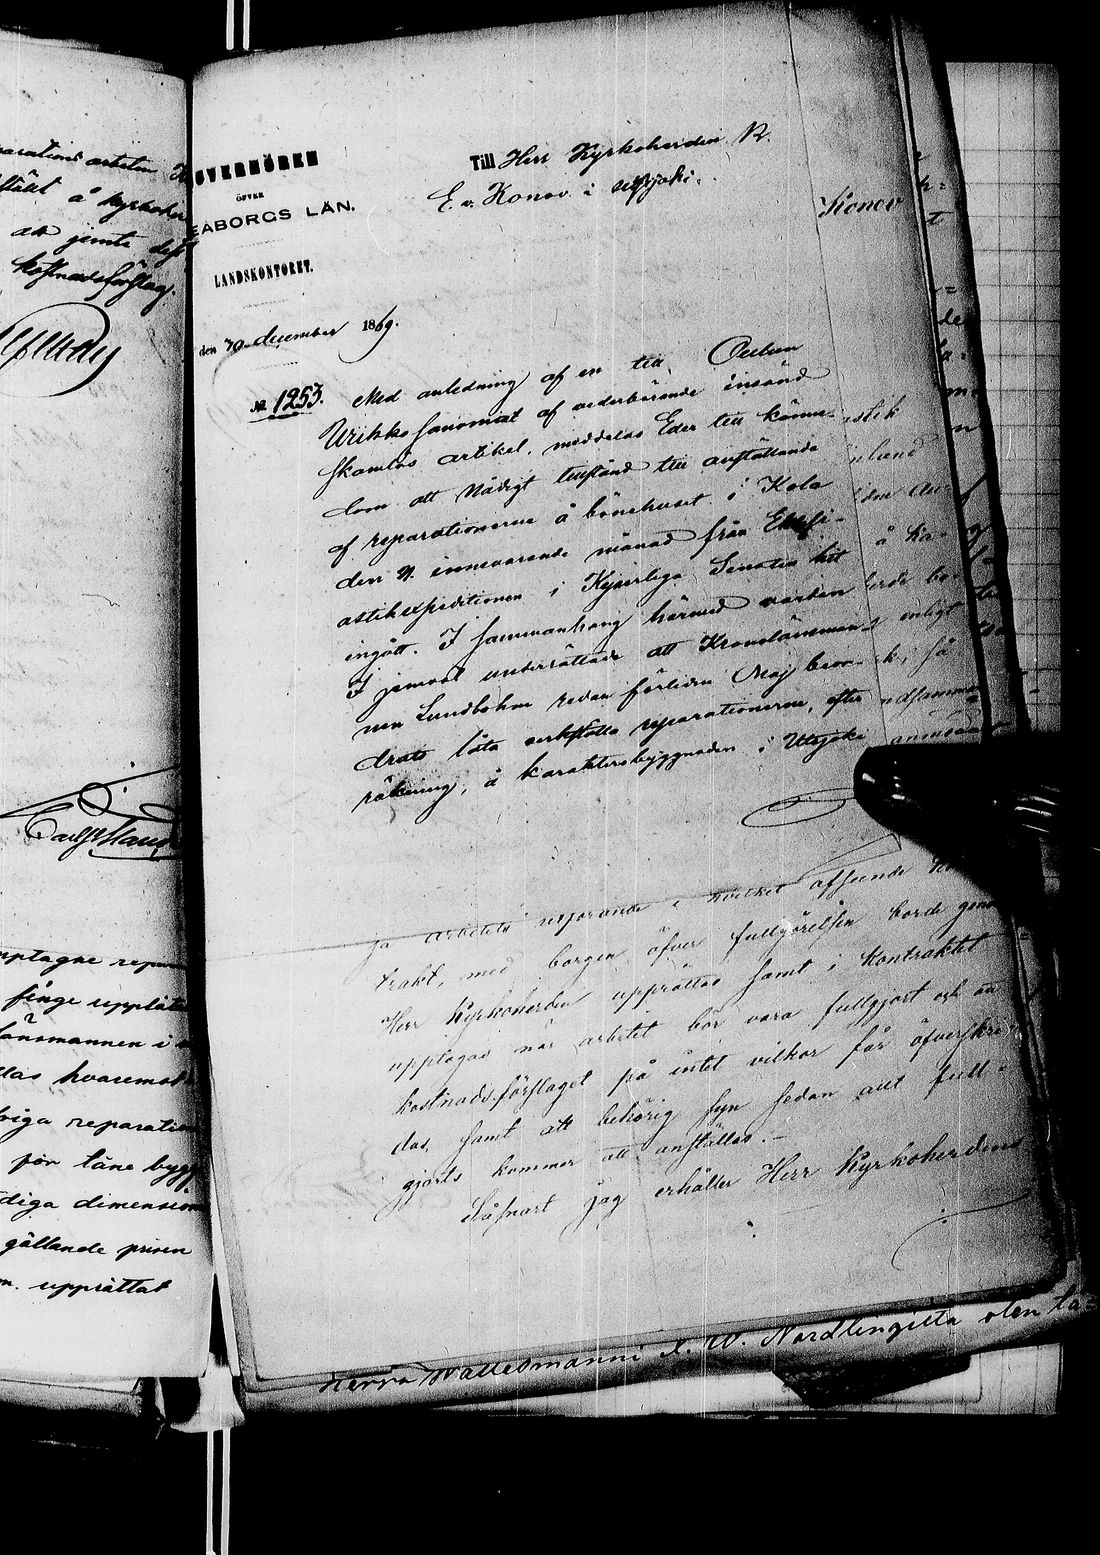 parations arbeten
stält å kyrkoher
att jemte det
kostnadsförslag.
pptagne repa
finge upplåta
länsmannen i
las hvaremot
friga reparation
för täne bygg
diga dimension
gällande prisen
m. upprättat
GUVERNÖREN
ÖFVER
ULEÅBORGS LÄN.
LANDSKONTORET.
den 30 december 1869.
No 1253.
Till Herr Kyrkoherden R.
E. v. Konow i Utsjoki.
Konow
Med anledning af en till Oulun
Wiikko Sanomat af vederbörande insänd
skamlös artikel, meddelas Eder till känne-
dom att Nådigt tillstånd till anställande
af reparationerne å bönehuset i Kola
den 4 innevarande månad från Eklesi-
astikexpeditionen i Kejserliga Senaten hit
ingått. I sammanhang härmed varden
I jemväl underrättade att Kronolänsman-
nen Lundbohm redan förliden Maj beor-
drats låta verkställa reparationerne, efter
räkning, å karaktersbyggnaden i Utsjoki
ja arbetets utförande i hvilket afseende Kon
trakt, med borgen öfver fullgörelsen borde genom
Herr Kyrkoherden upprättas samt i Kontraktet
upptagas när arbetet bör vara fullgjort och att
kostnadsförslaget på intet vilkor får öfverskri
das, samt att behörig syn sedan allt full-
gjorts kommer att anställas.—
Såsnart jag erhåller Herr Kyrkoherdens
Herra Wallesmanni A. W. Nordlingilta olen